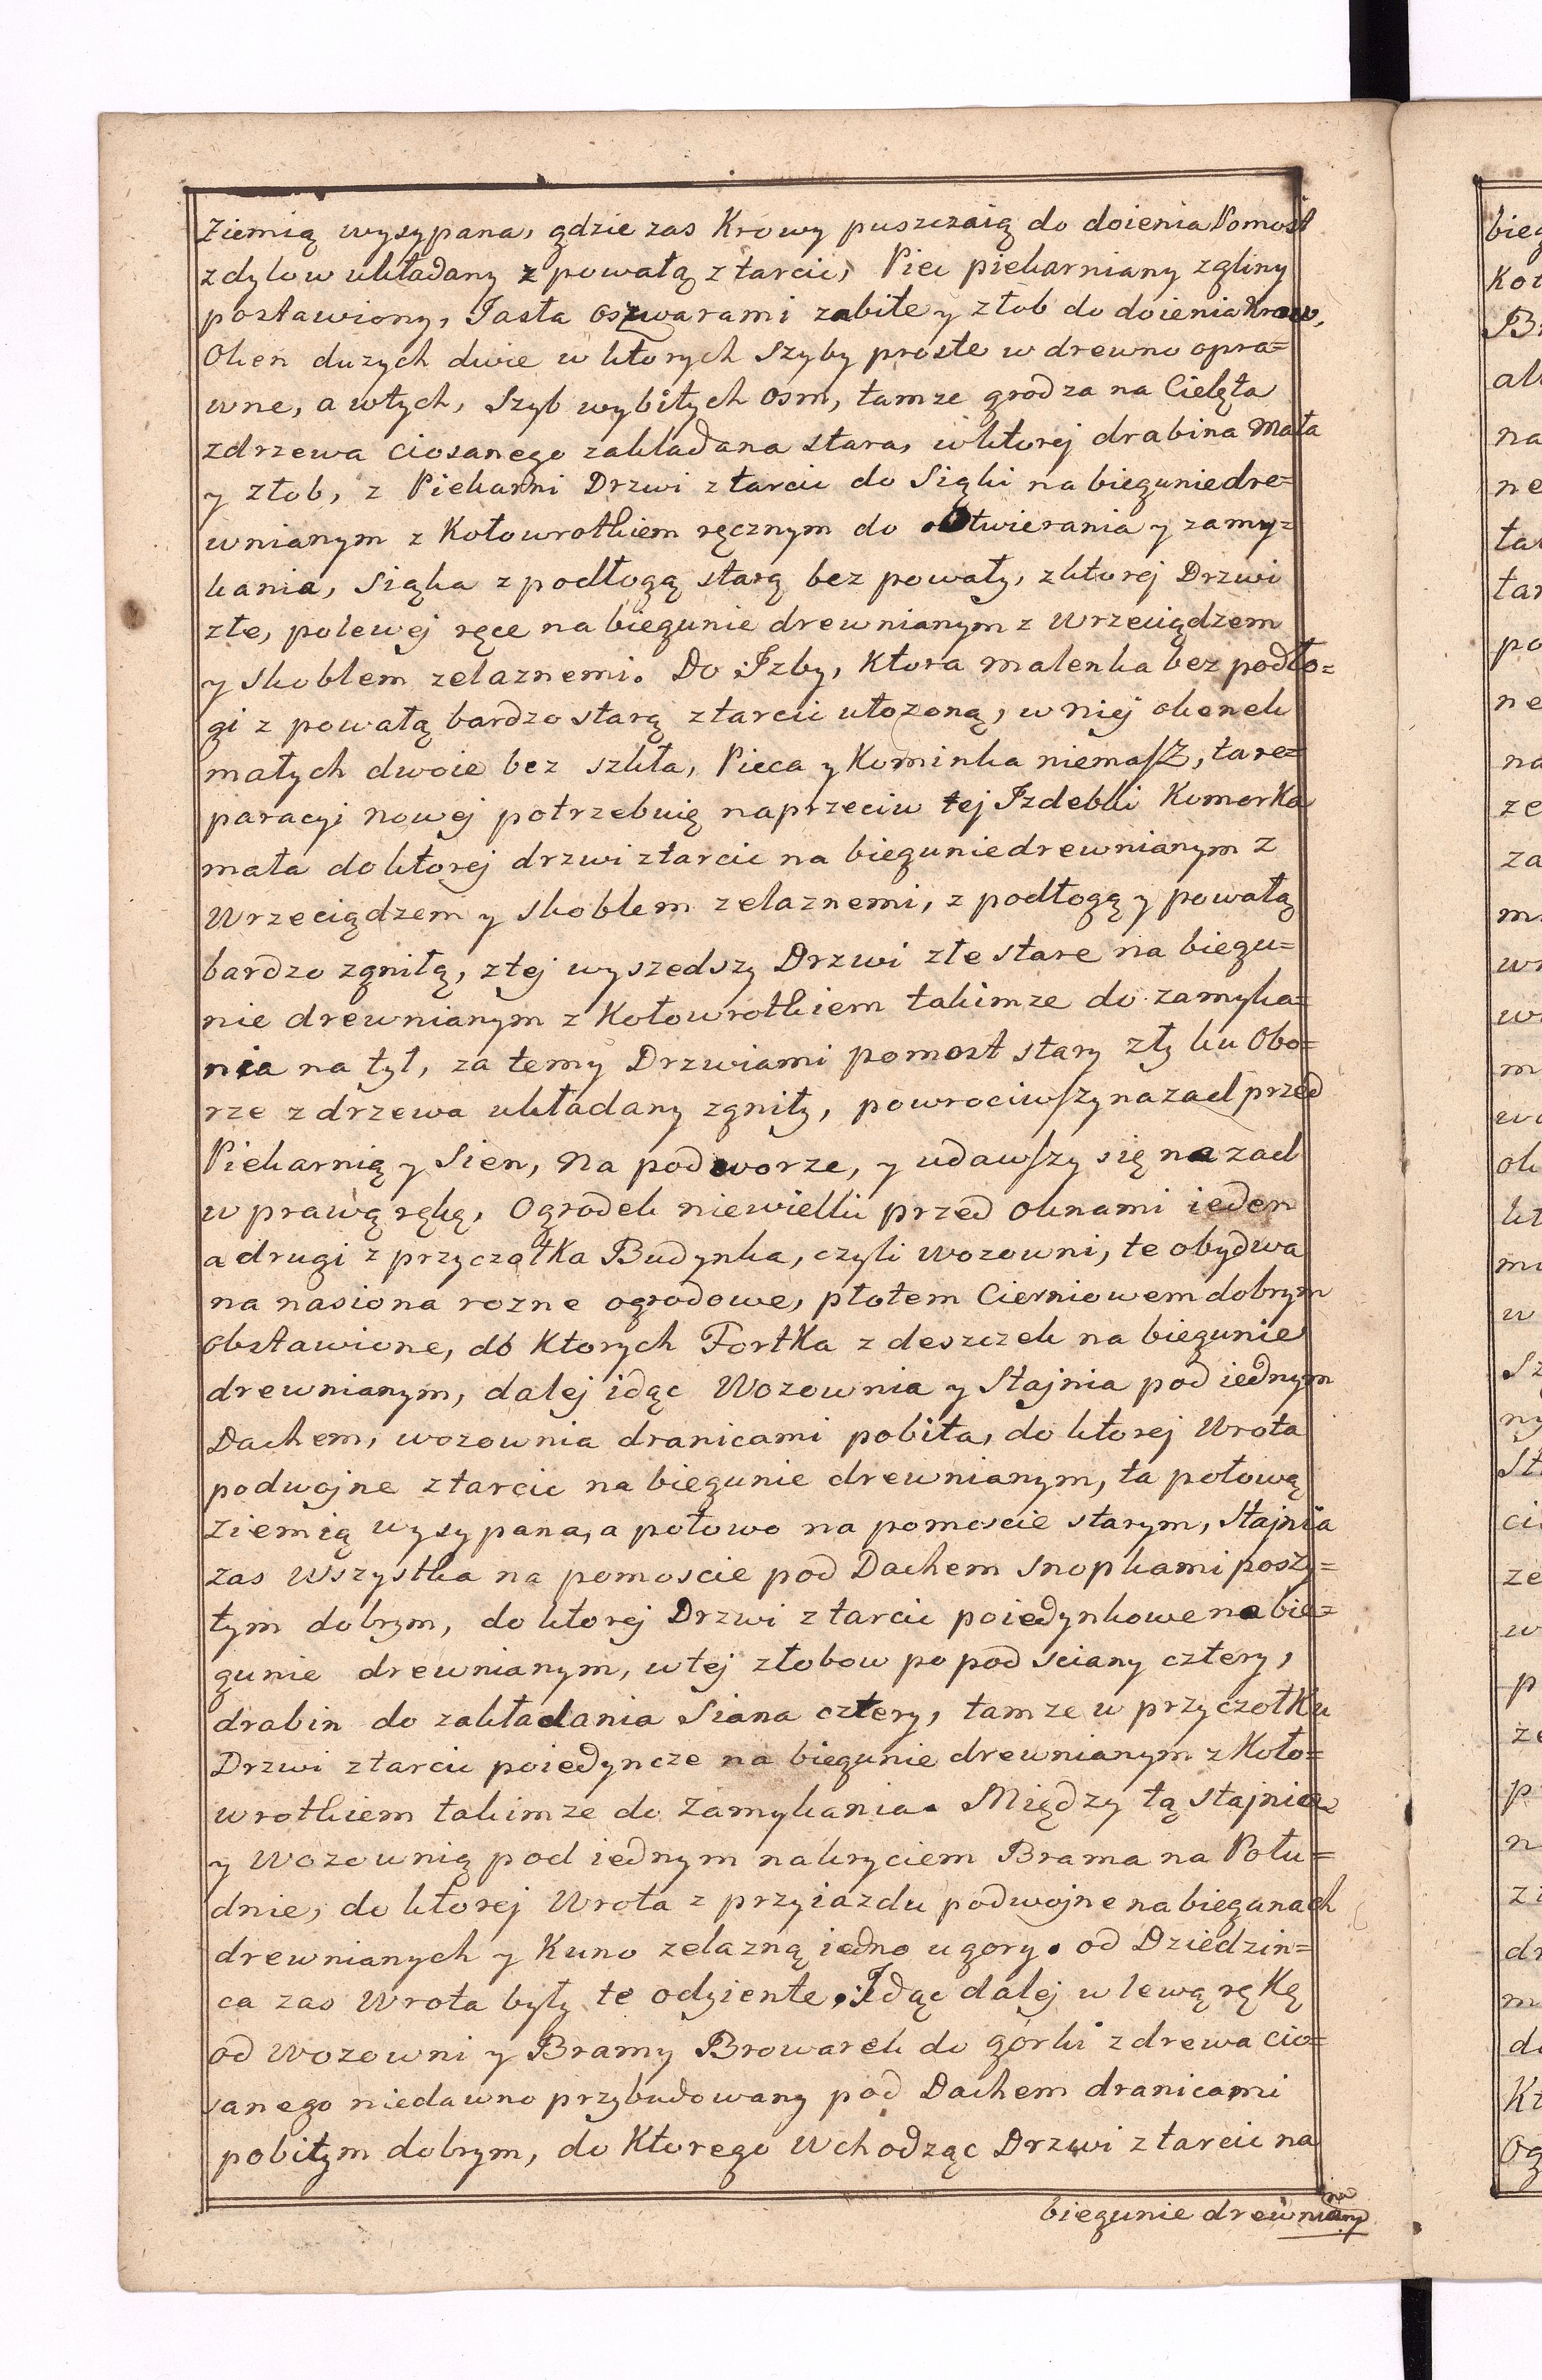 Ziemią wysypana, gdzie zas Krowy puszczaią do doienia Pomost
z dylow układany z powałą z tarcic, Piec piekarniany z gliny
postawiony, Jasła oszwarami zabite y złob do doienia Krow,
Okien duzych dwie w ktorych Szyby proste w drewno opra=
wne, a wtych, Szyb wybitych osm, tamze grodza na Cielęta
zdrzewa ciosanego zakładana stara, wktorej drabina Mała
y złob, z Piekarni Drzwi z tarcic do Siąki na biegunie dre=
wnianym z Kołowrotkiem ręcznym do Otwierania y zamy=
kania, Siąka z podłogą starą bez powały, zktorej Drzwi
złe, polewej ręce na biegunie drewnianym z Wrzeciądzem
y skoblem zelaznemi. Do Jzby, Ktora malenka bez podło=
gi z powałą bardzo starą z tarcic ułozoną, w niej okenek
małych dwoie bez szkła, Pieca y Kominka niemasz, ta re=
paracyi nowej potrzebuię naprzeciw tej Jzdebki Komorka
mała do ktorej drzwi z tarcic na biegunie drewnianym z
Wrzeciądzem y skoblem zelaznemi, z podłogą y powałą
bardzo zgniłą, ztej wyszedszy Drzwi złe stare na biegu=
nie drewnianym z Kołowrotkiem takimze do zamyka=
nia na tył, za temy Drzwiami pomost stary zły ku Obo=
rze z drzewa układany zgniły, powrociwszy nazad przed
Piekarnią y Sien, Na podworze, y udawszy się nazad
w prawą rękę, Ogrodek niewielki przed oknami ieden
a drugi z przyczołka Budynka, czyli wozowni, te obydwa
na nasiona rozne ogrodowe, płotem Cierniowem dobrym
obstawione, do Ktorych Fortka z deszczek na biegunie
drewnianym, dalej idąc Wozownia y Stajnia pod iednym
Dachem, wozownia dranicami pobita, do ktorej Wrota
podwojne z tarcic na biegunie drewnianym, ta połową
Ziemią wysypana, a połowo na pomoscie starym, Stajnia
zas Wszystka na pomoscie pod Dachem Snopkami poszy=
tym dobrym, do ktorej Drzwi z tarcic poiedynkowe na bie=
gunie drewnianym, wtej złobow po pod sciany cztery,
drabin do zakładania Siana cztery, tamze w przyczołku
Drzwi z tarcic poiedyncze na biegunie drewnianym z Koło=
wrotkiem takimze do Zamykania. Między tą stajnią
y Wozownią pod iednym nakryciem Brama na Połu=
dnie, do ktorej Wrota z przyiazdu podwojne na biegunach
drewnianych y Kuno zelazną iedno u gory. od Dziedzin=
ca zas Wrota były te odziente. Jdąc dalej w lewą rękę
od Wozowni y Bramy Browarek do górki z drewa cio=
sanego niedawno przybudowany pod Dachem dranicami
pobitym dobrym, do Ktorego Wchodząc Drzwi z tarcic na
biegunie drewniany